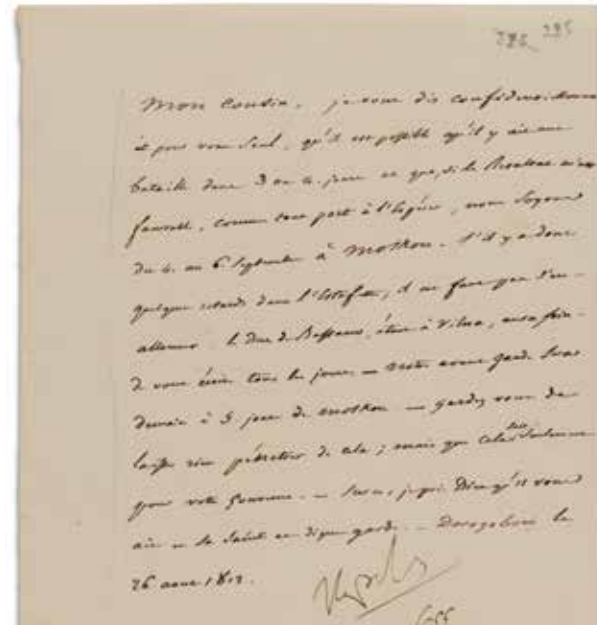 285 285
Mon Cousin, je vous dis confidentiellement
et pour vous seul, qu'il est possible qu'il y ait une
bataille dans 3 ou 4 jours et que, si le Résultat m'est
favorable, comme tout port à l'espérer, nous soyons
du 4 au 6 Septembre à Moskou. S'il y a donc
quelques retards dans l'estafette, il ne faut pas s'en
allarmer. Le Duc de Bassano, étant à Vilna, aura soin
de vous écrire tous les jours — notre avant garde sera
demain à 3 jours de moskou — gardez vous de
laisser rien pénétrer de cela ; mais que cela soit seulement
pour votre gouverne. — Sur ce, je prie Dieu qu'il vous
ait en sa Sainte et digne garde. — Dorogobouj le
26 aout 1812.